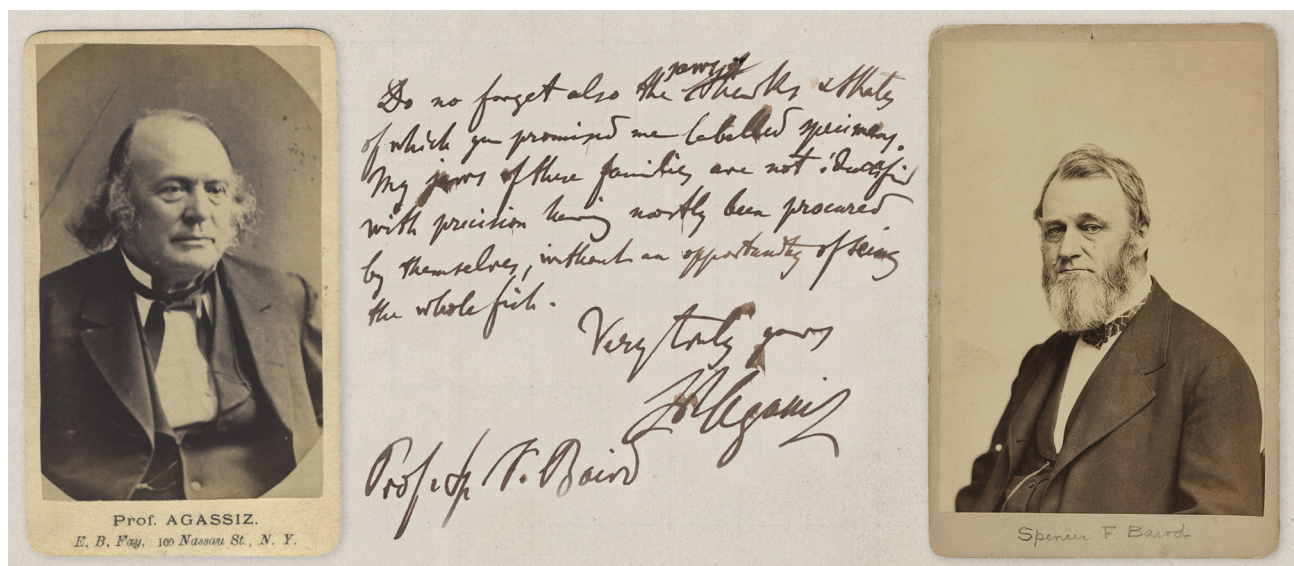 Prof. AGASSIZ.
E. B. Fay, 100 Nassau St., N. Y.
Do no forget also the jaws of Sharks & Skates
of which you promised me labelled specimens.
My jaws of these families are not identified
with precision having mostly been procured
by themselves, without an opportunity of seeing
the whole fish.
Very truly yours
L Agassiz
Prof. Sp. F. Baird
Spencer F. Baird